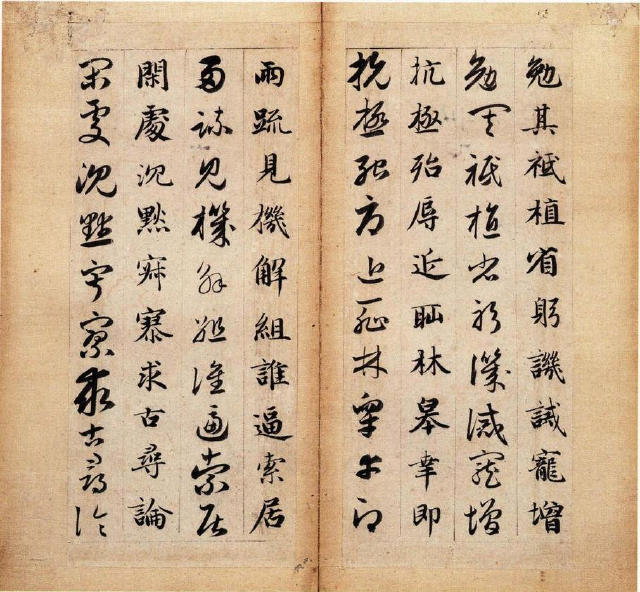 勉其祗植省躬譏誡寵增
勉其祗植省躬譏誡寵增
抗極殆辱近耻林皋幸即
抗極殆辱近耻林皋幸即
兩疏見機解組誰逼索居
兩疏見機解組誰逼索居
閑處沉默寂寥求古尋論
閑處沉默寂寥求古尋論